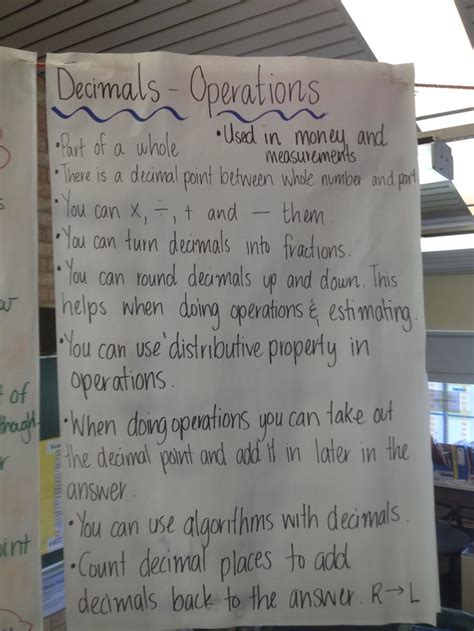 Decimals - Operations
• Part of a whole
• Used in money and
measurements
• There is a decimal point between whole number and part
• You can x, ÷, + and — them.
• You can turn decimals into fractions.
• You can round decimals up and down. This
helps when doing operations & estimating.
• You can use distributive property in
operations.
• When doing operations you can take out
the decimal point and add it in later in the
answer.
• You can use algorithms with decimals.
• Count decimal places to add
decimals back to the answer. R→L
of